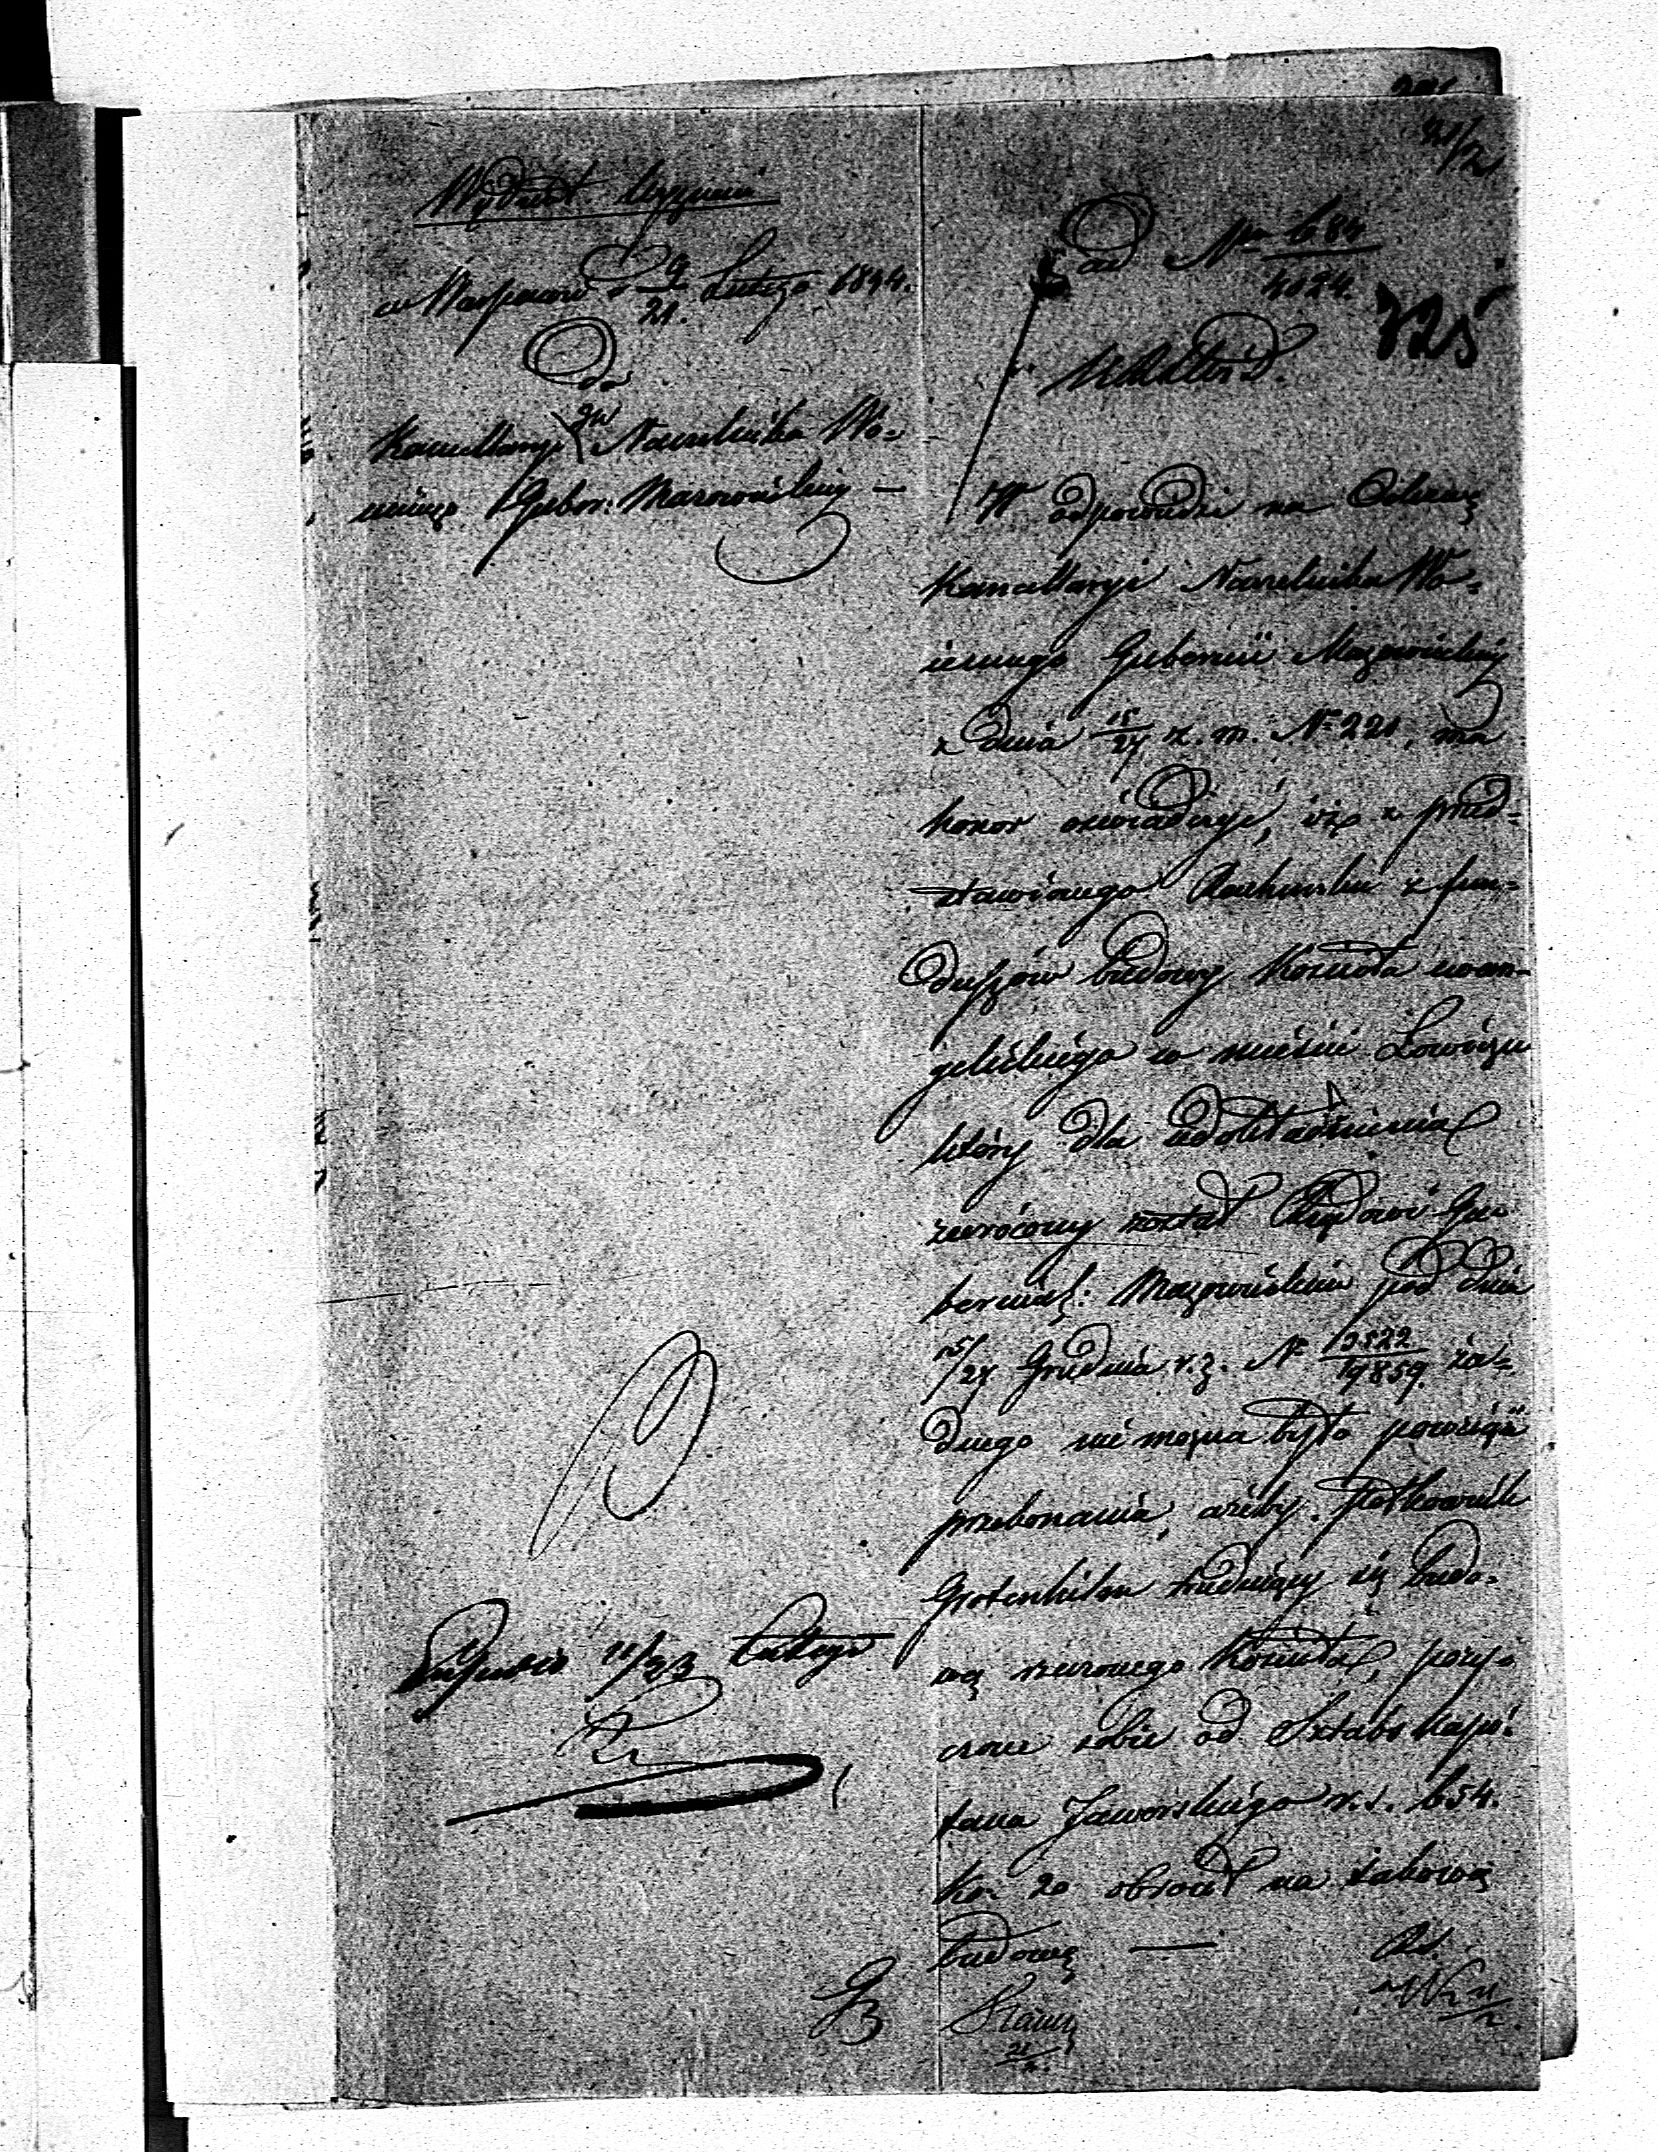 Wydział
w Warszawie d 9/21. Lutego 1844.
Do
Kancellaryi Naczelnika Wo-
iennego Guber: Mazowieckiey —
21/2
ad Nra 684/4024.
725
W odpowiedzi na Odezwę
Kancellaryi Naczelnika Wo-
iennego Gubernii Mazowieckiey
z dnia 15/27 z. m. N 221, ma
honor oświadczyć, iż z przed-
stawionego Rachunku z fun-
duszów budowy Kościoła ewan-
gelickiego w mieście Łowiczu
który dla
zwrócony został Rządowi Gu-
bernial: Mazowieckiu pod dniem
15/27 Grudnia r. z. N 13522/19859. ża-
dnego nie można było powziąść
przekonania, ażeby Pułkownik
trudniący się budo-
wą rzeczonego Kościoła, poży-
czone sobie od Sztabs Kapi-
tana Jaworskiego r. s. 654.
ko: 20 obrócił na takową
budowę —
11/23 Lutego